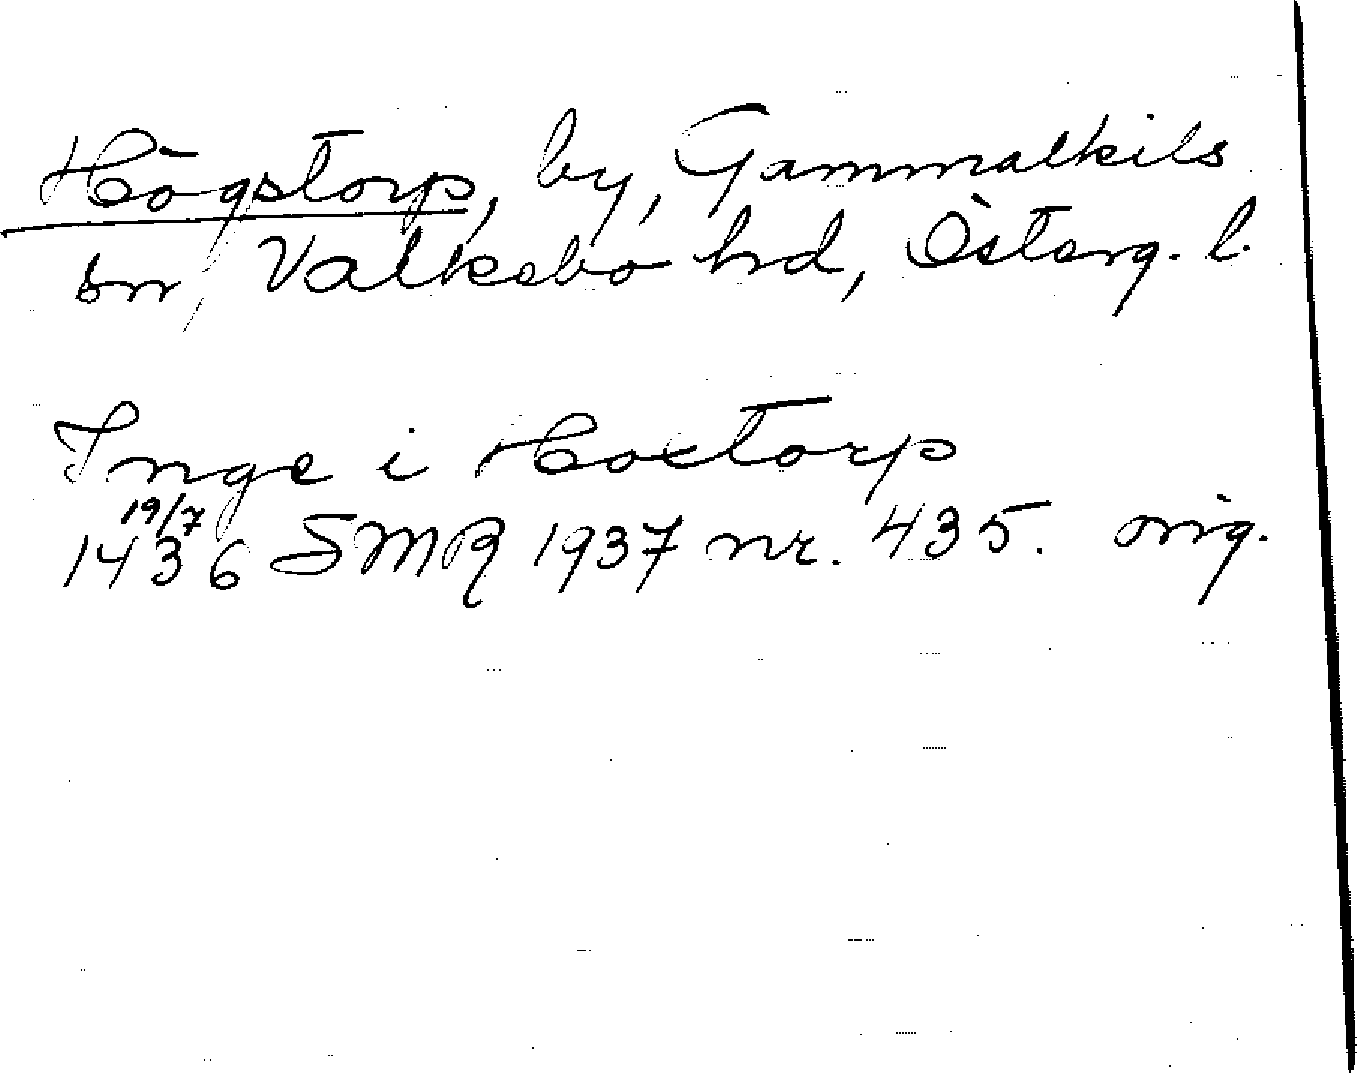 Högstorp, by, Gammalkils
sn, Valkebo hd, Österg. l.
Inge i Hoctorp
19/7
1436 SMR 1937 nr. 435. orig.